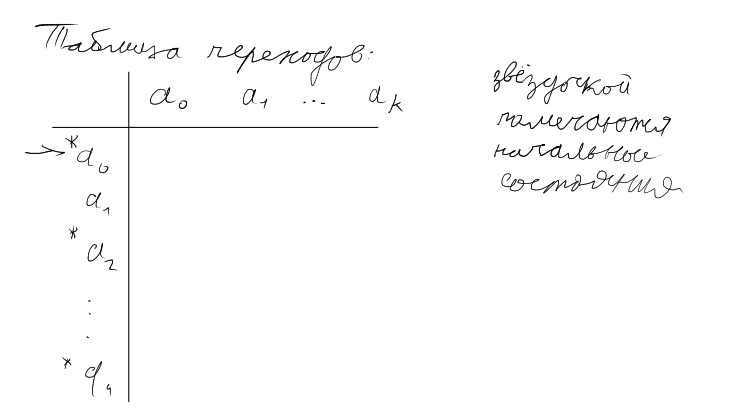 Таблица переходов:
a₀ a₁ ... aₖ
→ *q₀
q₁
*q₂
⋮
*q₄
звёздочкой
помечаются
начальное
состояния